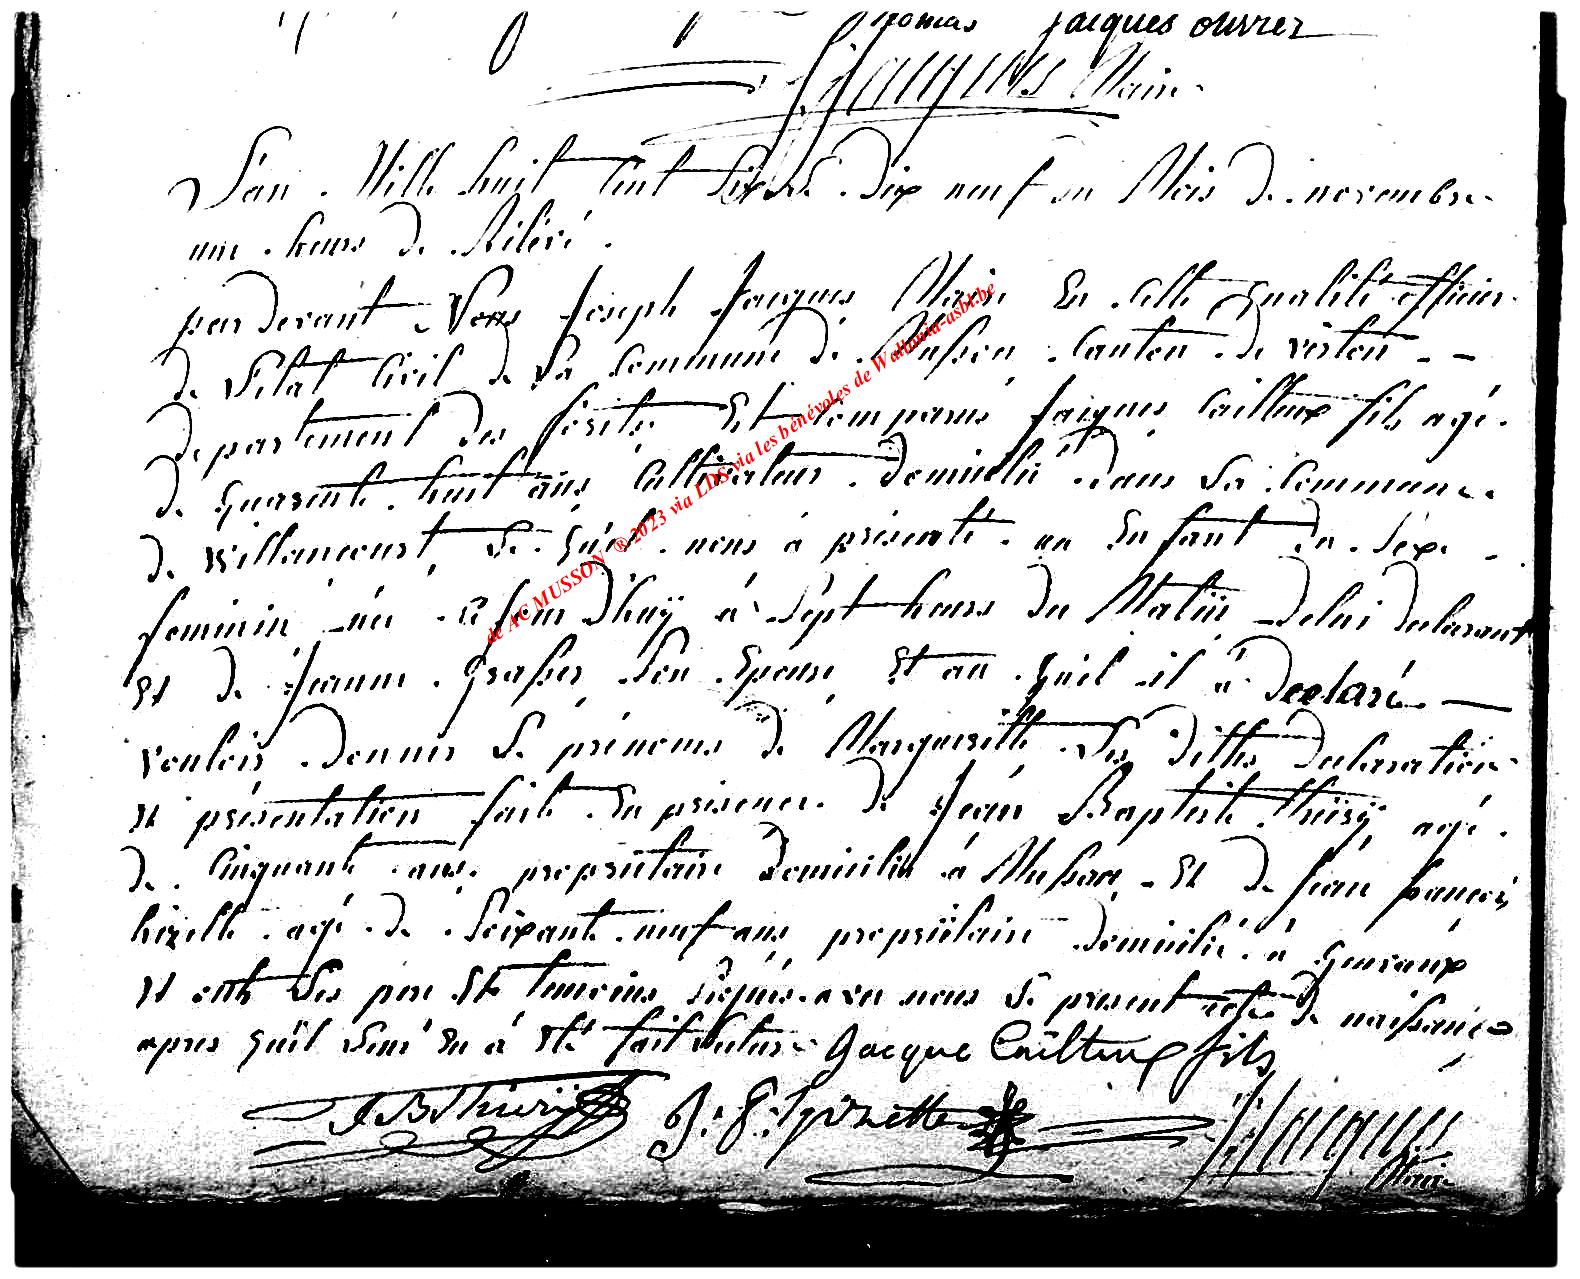 Thomas Jacques ouvrer
JJacques Maire
L'an Mille huit Cent Dix neuf du Mois de novembre
une heure de Relevé.
par devant Nous Joseph Jacques Maire En Cette qualité officier
de L'état Civil de La Commune de Musson Canton de virton - -
departement des forêts Est Comparus Jacques Cailteux fils agé
de quarente huit ans Cultivateur domicilié dans La Commune
de willancourt, Le quel nous a présenté un Enfant du Sexe -
feminin née Cejourdhuÿ à Sept heure du Matin delui declarant
Et de Jeanne Grasser Son Epouse Et au quel il a declaré —
vouloir donner Le prénoms de Margueritte Les dittes declaration
Et présentation fait En présence de Jean Baptiste thiirÿ agé
de Cinquante ans propriétaire domicilié à Musson - Et de Jean françois
hizette agé de Soixante neuf ans propriétaire domicilié à Gouraux
Et ont Les pere Et temoins Signés avec nous Le present acte de naissance
apres qu'il Leur En a Eté fait Lecture Jacque Cailteux fils
J B Thiirÿ J: F: hizette JJacques
Maire
de AC MUSSON ® 2023 via LDS via les bénévoles de Wallonia-asbl.be